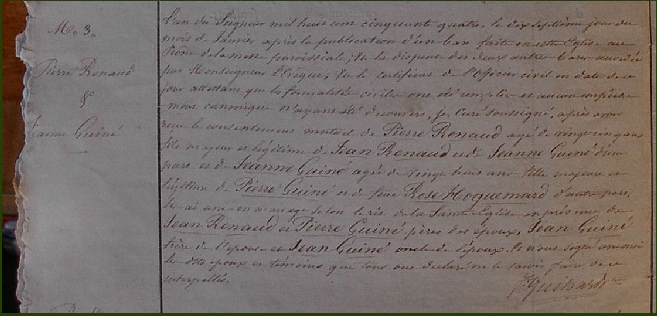 M. 3.
Pierre Renaud
&
Jeanne Guiné
L'an du Seigneur mil huit cent cinquante quatre, le dix septième jour du
mois de Janvier après la publication d'un ban faite en cette Eglise au
Prône de la messe paroissiale, Vu la dispense des deux autres bans accordée
par Monseigneur l'Evêque, Vu le certificat de l'officier civil en date de ce
jour attestant que la formalité civile a été remplie et aucun empêche-
ment canonique n'ayant été découvert, je, Curé soussigné, après avoir
reçu le consentement mutuel de Pierre Renaud agé de vingt cinq ans
fils majeur et légitime de Jean Renaud et de Jeanne Guiné d'une
part et de Jeanne Guiné agée de vingt huit ans fille majeure et
légitime de Pierre Guiné et de feue Rose Hoquemard d'autre part,
le ai unis en mariage selon le rit de la Sainte Eglise en présence de
Jean Renaud et Pierre Guiné pères des époux, Jean Guiné
frère de l'épouse et Jean Guiné oncle de l'époux. Et nous signé
le dits époux et témoins que tous ont déclaré ne le savoir faire de ce
interpellés.